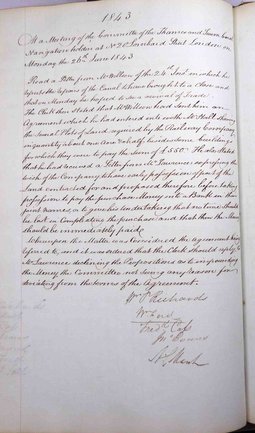 1843
At a Meeting of the Committee of the Thames and Severn Canal
Navigation holden at No 2 Lombard Street London on
Monday the 26th June 1843
Read a Letter from Mr Wilson of the 24th Inst in which he
reports the repairs of the Canal to have brought to a Close and
that on Monday he hoped to see a revival of Trade
The Clerk then stated that Mr Wilson had sent him an
Agreement which he had entered into with Mr Hall
the Small Plot of Land required by the Railway Company
in quantity about one acre & a half besides some buildings
for which they were to pay the sum of £550. He also stated
that he had received a Letter from Mr Lawrence expressing the
wish of the Company to have early possession of part of the
Land contracted for and proposed before taking
possession to pay the purchase Money into a Bank in the
joint names, or to give his undertaking that no time should
be lost in Completing the purchase and that then the Money
should be immediately paid
Whereupon the Matter was Considered the Agreement being
referred to, and it was ordered that the Clerk should reply to
Mr Lawrence declining the Propositions as to impounding
the Money the Committee not seeing any reason for
deviating from the Terms of the Agreement.
Wm
Fredk